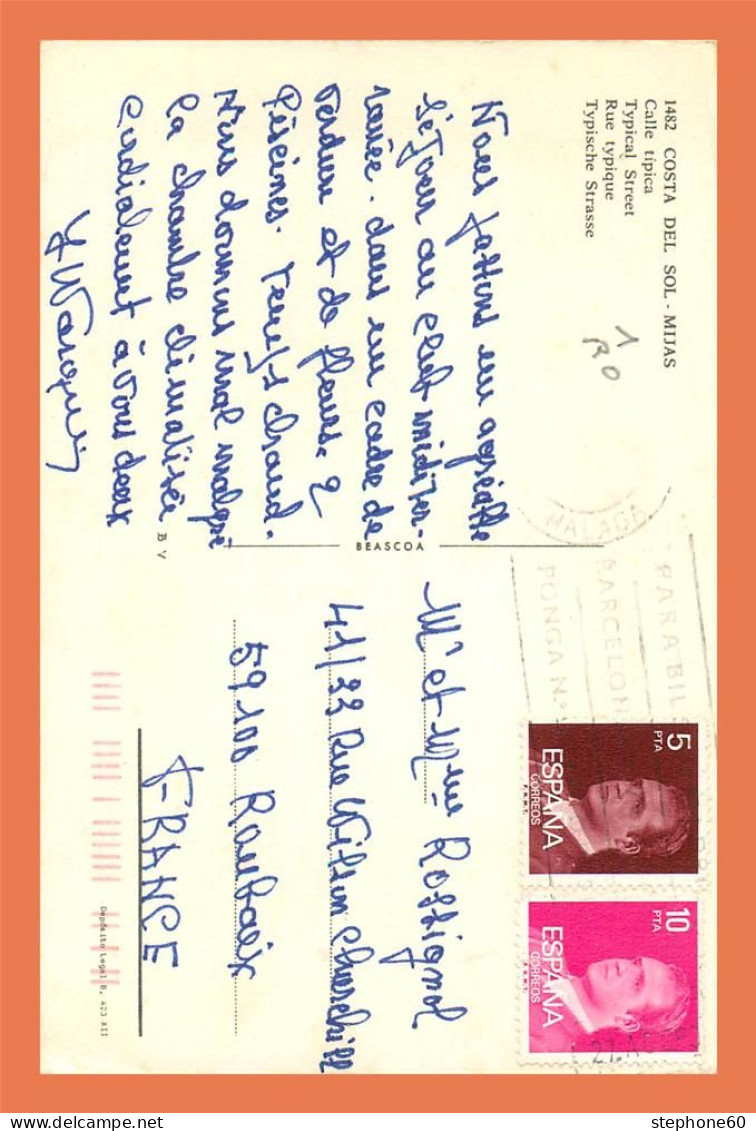 1482 COSTA DEL SOL - MIJAS
Calle típica
Typical Street
Rue typique
Typische Strasse
1
RO
Nous faisons un agréable
séjour au club méditer-
ranée. dans un cadre de
verdure et de fleurs. 2
Piscines. Temps chaud.
Nous dormons mal malgré
la chambre climatisée
Cordialement à vous deux
BEASCOA
B V
MALAGA
PARA
BARCELON
PONGA Nº
5
PTA
ESPAÑA
CORREOS
F.N.M.T.
10
PTA
ESPAÑA
CORREOS
F.N.M.T.
27.
Mr et Mme Rossignol
41/33 Rue Wilson Churchill
59100 Roubaix
FRANCE
Depósito Legal B. 423 XII
stephone60